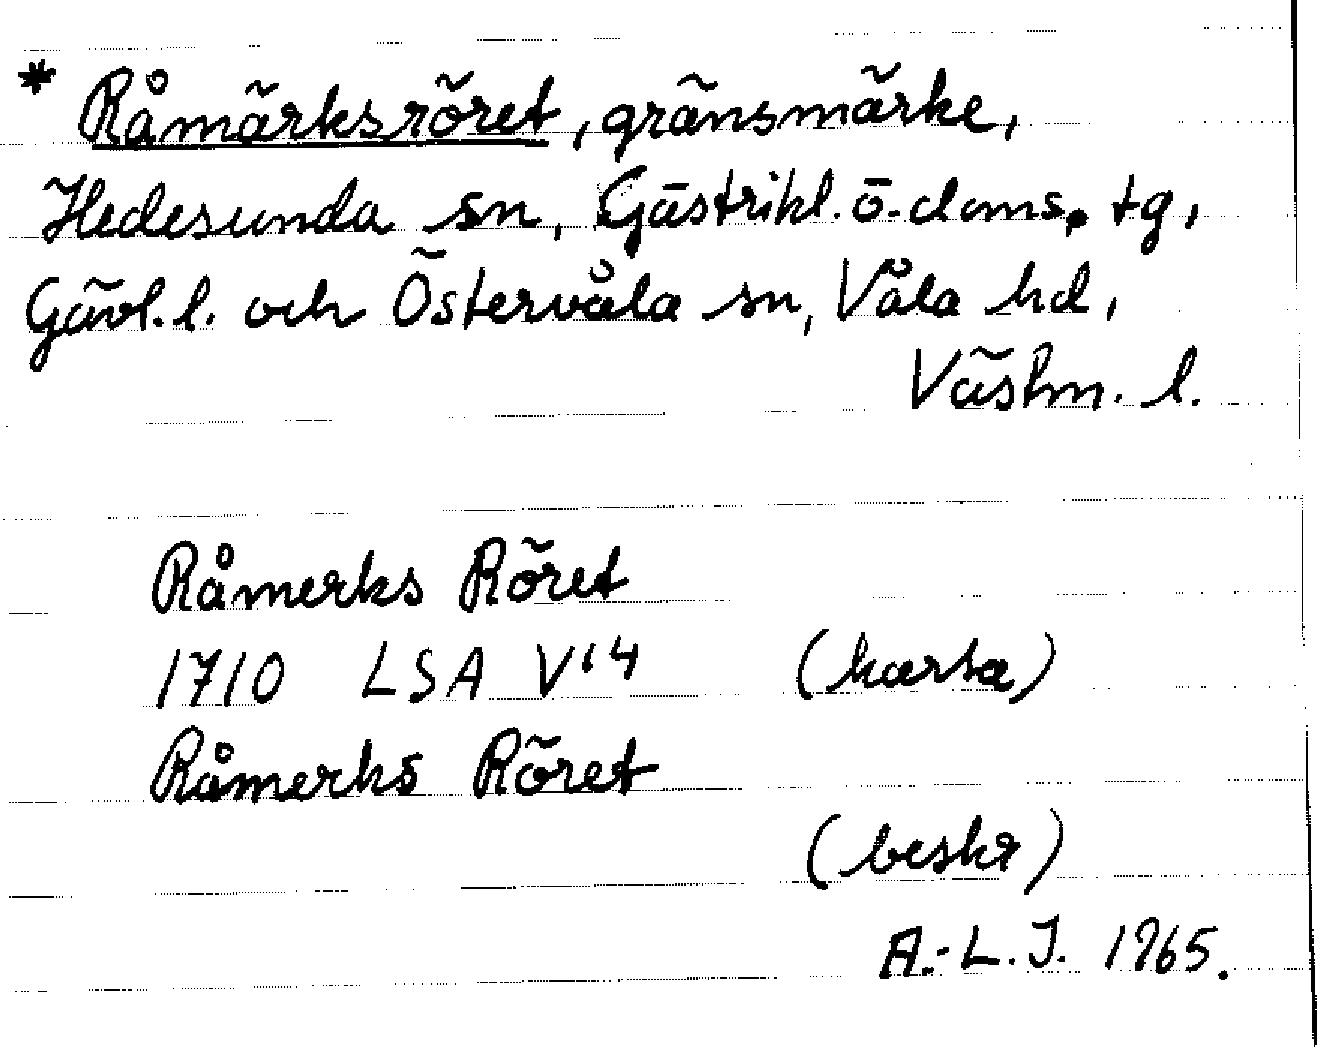 * Råmärksröret, gränsmärke,
Hedesunda sn, Gästrikl. ö. doms. tg,
Gävl. l. och Östervåla sn, Våla hd,
Västm. l.
Råmerks Röret
1710 LSA V:4 (karta)
Råmerks Röret
(beskr)
A.-L.J. 1965.